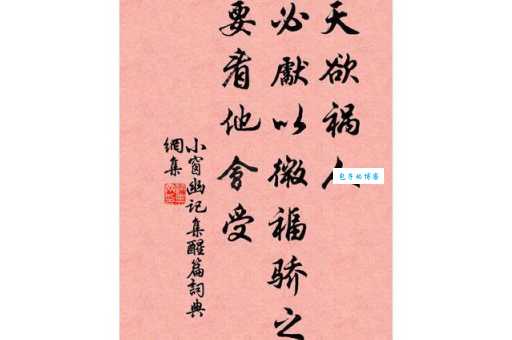 天欲祸人
必獻以微福骄之
要看他會受
小窗幽记集醒篇詞典
網集
包子的博客